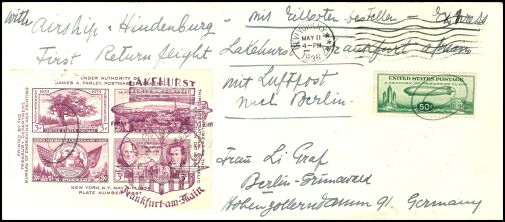 with
Airship "Hindenburg"
First Return flight
mit Eilboten bestellen - Express
Lakehurst - Frankfurt a/Main
NEW YORK, N.Y.
MAY 11
4-PM
1936
mit Luftpost
nach Berlin.
UNDER AUTHORITY OF
JAMES A. FARLEY, POSTMASTER GENERAL
LAKEHURST
TREASURY DEPARTMENT
3¢
NEW YORK, N.Y., MAY
PLATE NUMBER
Frankfurt-am-Main
UNITED STATES POSTAGE
A CENTURY OF PROGRESS FLIGHT
50¢
Frau Li Graf
Berlin-Grunewald
Hohenzollerndamm 91. Germany